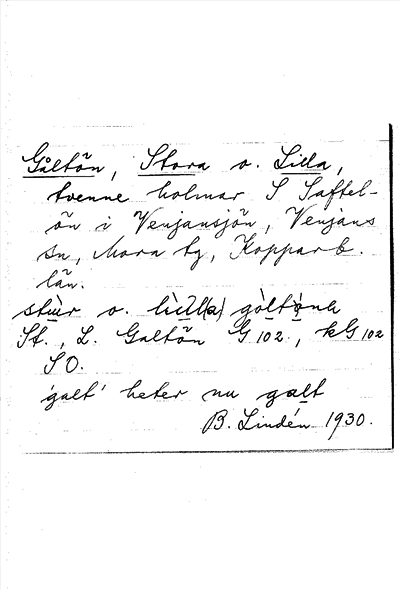 Galtön, Stora o. Lilla,
tvenne holmar S Saftel-
ön i Venjansjön, Venjans
sn, Mora tg, Kopparb.
län.
stùr o. lìll(a)
St., L. Galtön G 102, kG 102
SO.
'galt' heter nu galt
B. Lindén 1930.